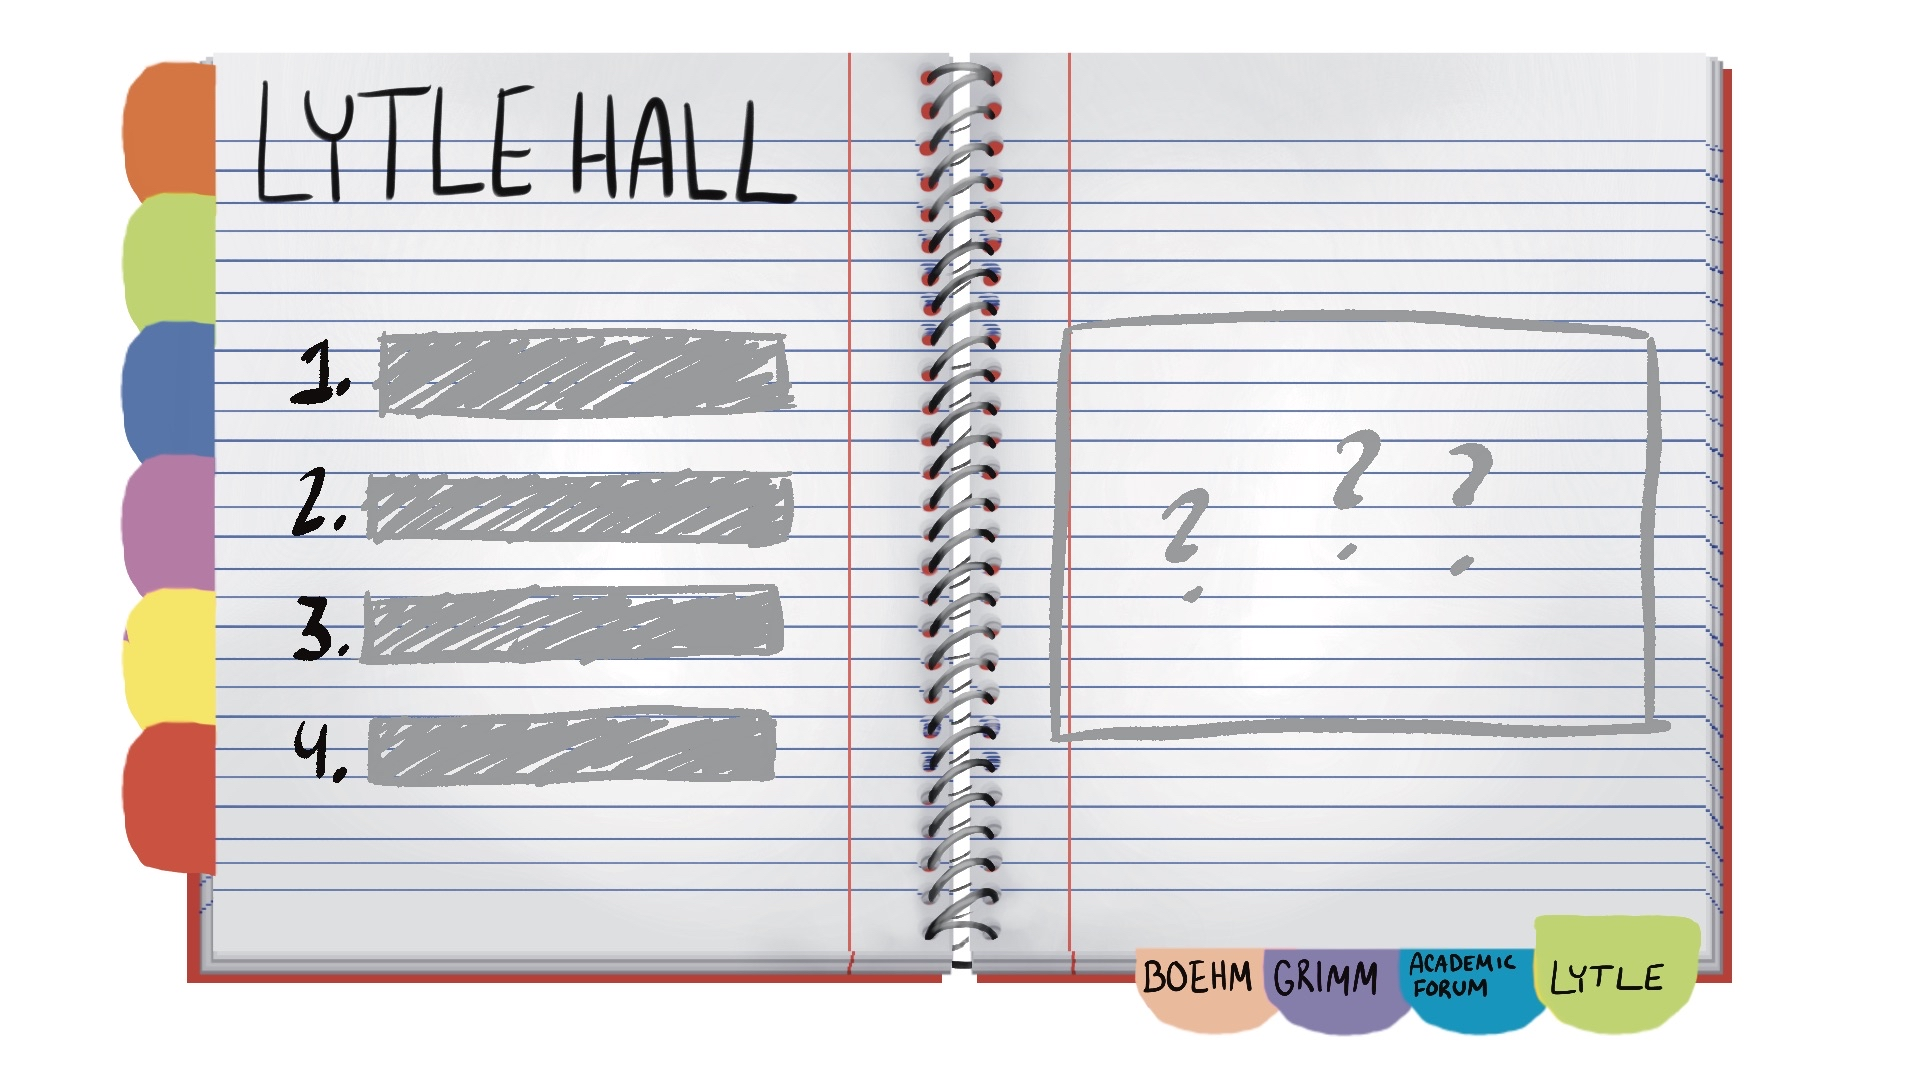 LYTLE HALL
1.
2.
3.
4.
? ? ?
BOEHM
GRIMM
ACADEMIC
FORUM
LYTLE